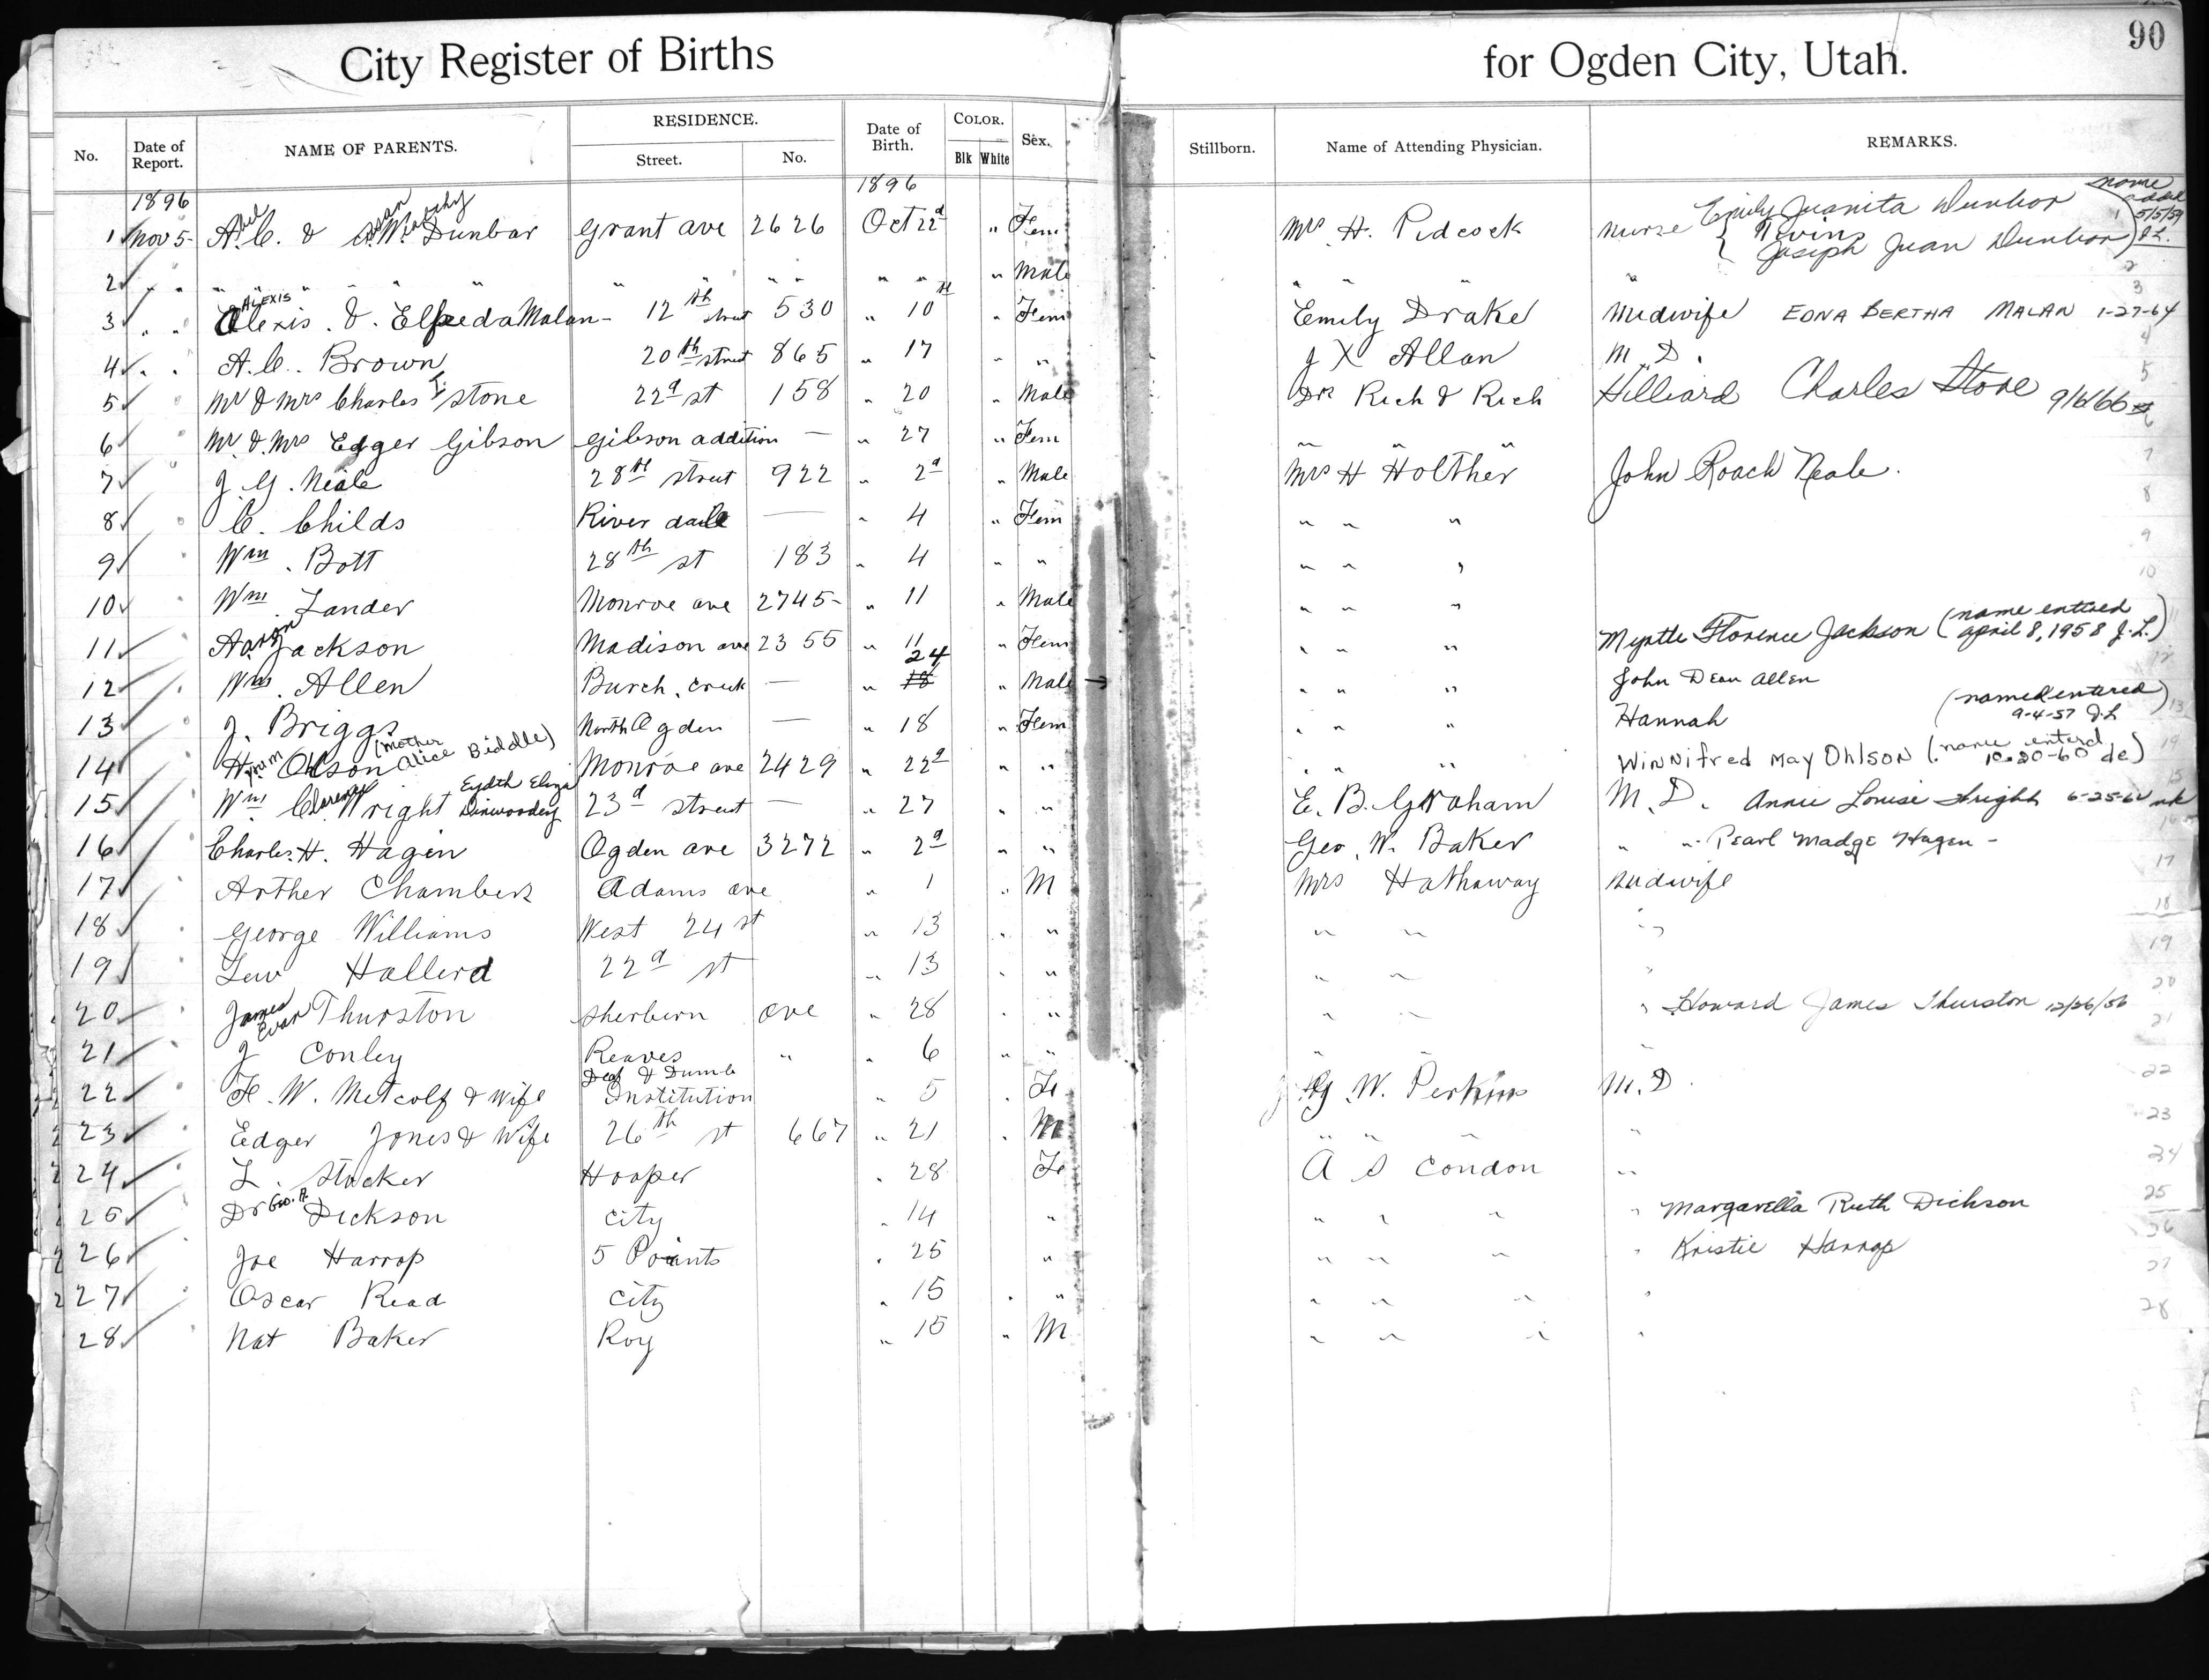 City Register of Births for Ogden City, Utah. 90
No. Date of Report. NAME OF PARENTS. RESIDENCE. Street. No. Date of Birth. COLOR. Blk White Sex. Stillborn. Name of Attending Physician. REMARKS.
1896 1896
1 Nov 5 A. C. & Dunbar Grant ave 2626 Oct 22d " Fem Mrs H. Pidcock Nurse Emily Juanita Dunbar Twins Joseph Juan Dunbar name added 5/5/59 J.L.
2 " " " " " " " " " " " " " Male " " " "
3 " " Alexis ALEXIS & Elfreda Malan 12th street 530 " 10th " Fem Emily Drake Midwife EDNA BERTHA MALAN 1-27-64
4 " " A. C. Brown 20th street 865 " 17 " " J X Allan M.D.
5 " Mr & Mrs Charles I. Stone 22d st 158 " 20 " Male Dr Rich & Rich Hilliard Charles Stone 9/6/66
6 " Mr & Mrs Edger Gibson Gibson addition — " 27 " Fem " " "
7 " J. G. Neale 28th street 922 " 2d " Male Mrs H Holther John Roach Neale.
8 " C. Childs River dale — " 4 " Fem " " "
9 " Wm. Bott 28th st 183 " 4 " " " " "
10 " Wm. Lander Monroe ave 2745 " 11 " Male " " "
11 " Aaron Jackson Madison ave 2355 " 11 " Fem " " " Myrtle Florence Jackson (name entered April 8, 1958 J.L.)
12 " Wm. Allen Burch Creek — " 18 24 " Male → " " " John Dean Allen
13 " J. Briggs North Ogden — " 18 " Fem " " " Hannah (named entered 9-4-57 J.L)
14 Hyrum Ohlson (mother Alice Biddle) Monroe ave 2429 " 22d " " " " " Winnifred May Ohlson (name entered 10-20-60 de)
15 Wm Clarence Wright Eydth Eliza Dinwoodey 23d street — " 27 " " E. B. Graham M.D. Annie Louise Wright 6-25-62 mk
16 Charles. H. Hagen Ogden ave 3272 " 2d " " Geo. W. Baker " " Pearl Madge Hagen -
17 " Arther Chambers Adams ave " 1 " M Mrs Hathaway Midwife
18 " George Williams West 24 st " 13 " " " " "
19 " Lew Hallerd 22d st " 13 " " " " "
20 " James Evan Thurston Sherburn ave " 28 " " " " " Howard James Thurston 12/26/56
21 " J Conley Reaves " " 6 " " " " "
22 " F. W. Metcalf & wife Deaf & Dumb Institution " 5 " Fe G. W. Perkins M.D
23 " Edger Jones & Wife 26th st 667 " 21 " M " " " "
24 " L. Stocker Hooper " 28 Fe A S Condon "
25 " Dr Geo. A. Dickson City " 14 " " " " " Ruth Dickson
26 " Joe Harrop 5 Points " 25 " " " " " Kristie Harrop
27 " Oscar Read City " 15 " " " " " "
28 " Nat Baker Roy " 15 " M " " " "